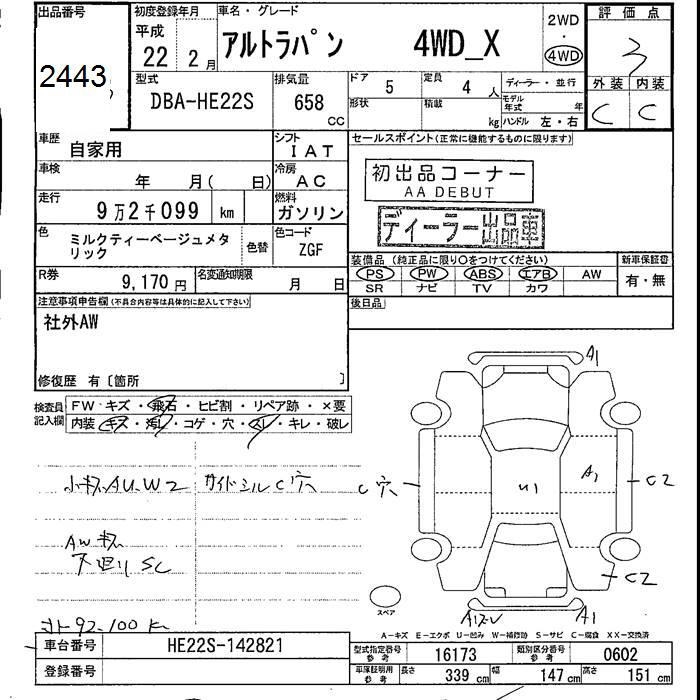 出品番号 初度登録年月 車名・グレード 2WD 評価点
2443 平成 22年 2月 アルトラパン 4WD_X ・ 4WD 3
型式 排気量 ドア 5 定員 4人 ディーラー・並行 外装 内装
DBA-HE22S 658 CC 形状 積載 kg モデル年式 年 C C
ハンドル 左・右
車歴 自家用 シフト IAT セールスポイント(正常に機能するものに限ります)
車検 年 月( 日) 冷房 AC 初出品コーナー
AA DEBUT
走行 9万2千099 km 燃料 ガソリン ディーラー出品車
色 ミルクティーベージュメタリック 色替 色コード ZGF
装備品 (純正品に限り○をつけてください) 新車保証書
R券 9,170円 名変通知期限 月 日 PS PW ABS エアB AW 有・無
SR ナビ TV カワ
注意事項申告欄(不具合内容等は具体的に記入して下さい) 後日品
社外AW
修復歴 有〔箇所 〕
検査員記入欄 FW キズ・飛石・ヒビ割・リペア跡・×要
内装・キズ・汚レ・コゲ・穴・スレ・キレ・破レ
小キズAU.W2 サイドシルC穴
AWキズ
下廻りSC
A1
C穴 U1 A1 C2
C2
スペア
A1
A-キズ E-エクボ U-凹み W-補修跡 S-サビ C-腐食 XX-交換済
車台番号 HE22S-142821
型式指定番号 参考 16173 類別区分番号 参考 0602
登録番号
車庫証明用 参考 長さ 339 cm 幅 147 cm 高さ 151 cm